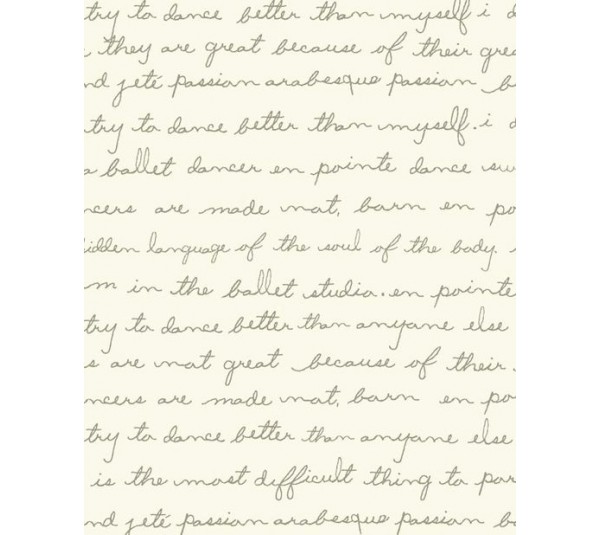 try to dance better than myself i d
, they are great because of their grea
nd jeté passion arabesque passion b
try to dance better than myself. i d
a ballet dancer en pointe dance su
ncers are made not, born en po
idden language of the soul of the body.
m in the ballet studio. en pointe
try to dance better than anyone else
s are not great because of their
ncers are made not, born en po
try to dance better than anyone else
is the most difficult thing to por
nd jeté passion arabesque passion b